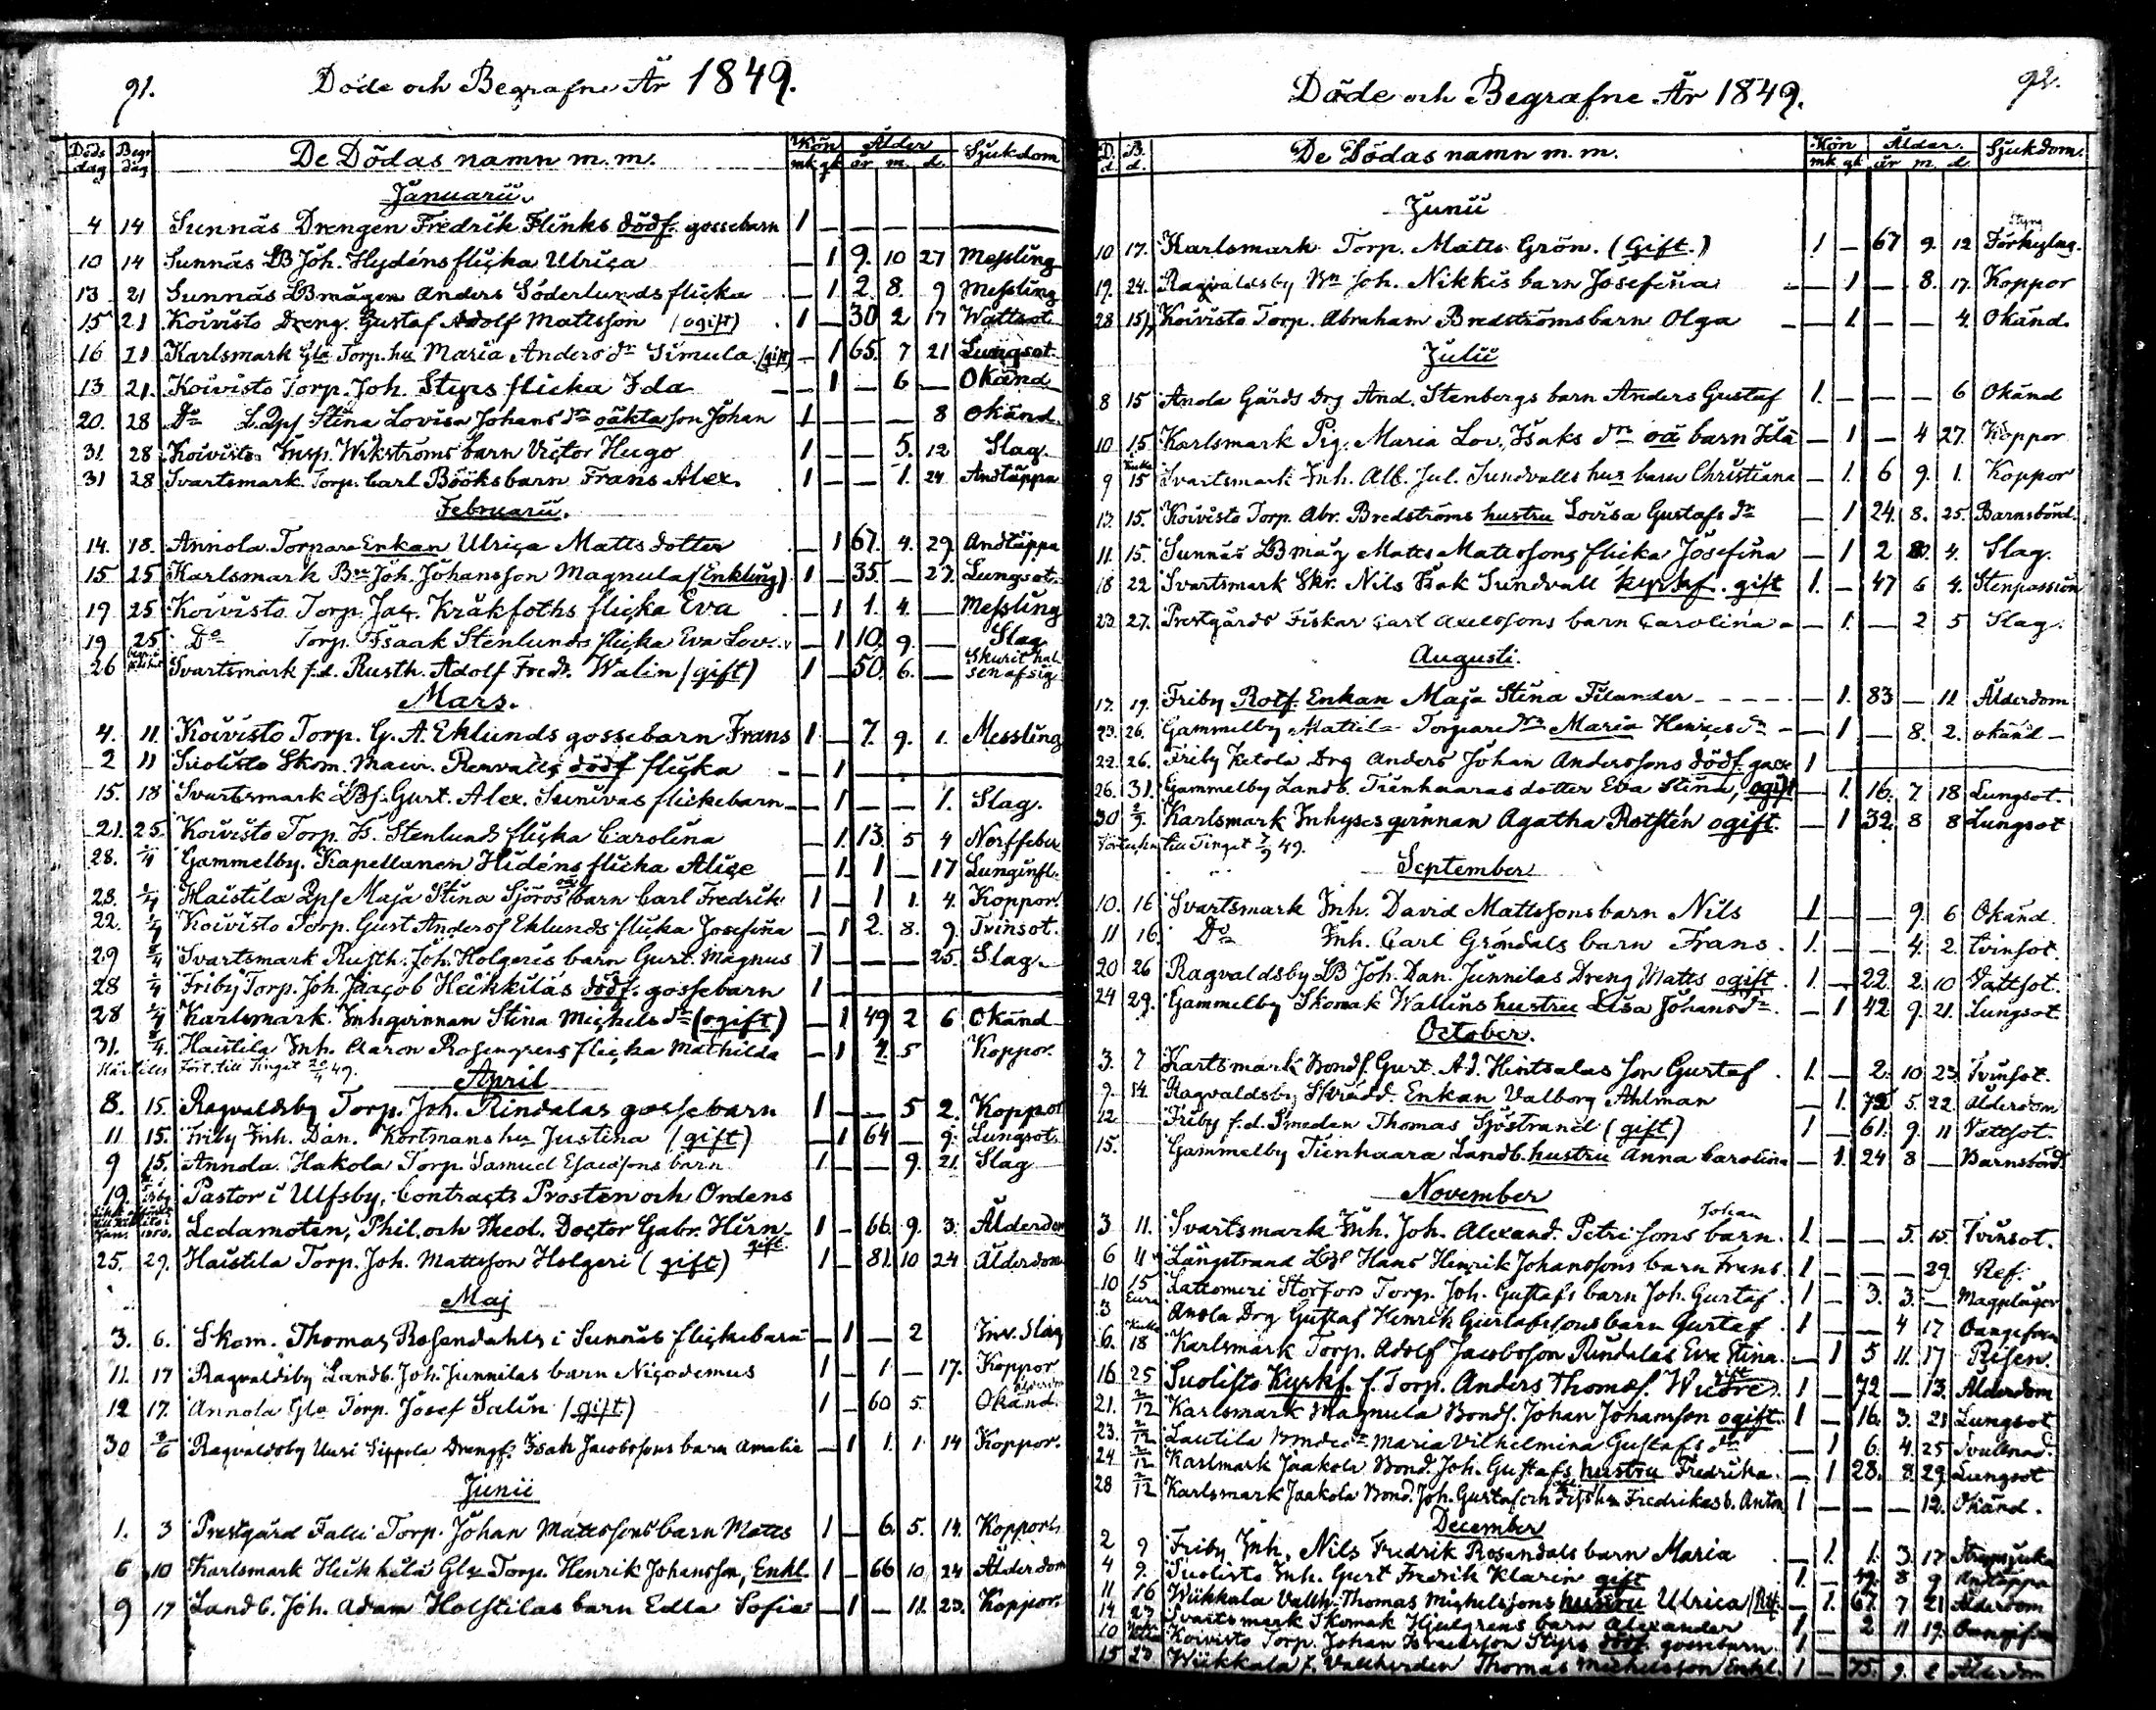 91.
Döde och Begrafne År 1849.
Döds dag Begr dag De Dödas namn m. m. Kön mk qk Ålder år m. d. Sjukdom
Januarii.
4 14 Sunnäs Drengen Fredrik Flinks dödf. gossebarn 1 — — — —
10 14 Sunnäs LB Joh. Hydéns flicka Ulrica — 1 9. 10 27 Messling
13 21 Sunnäs LBmågen Anders Söderlunds flicka — 1 2. 8. 9 Messling
15 21 Koivisto Dreng. Gustaf Adolf Mattsson (ogift) 1 — 30 2 17 Wattsot
16 21 Karlsmark Gla Torp. hu Maria Anders dr Simula (gift) — 1 65. 7 21 Lungsot
13 21. Koivisto Torp. Joh. Styrs flicka Ida — 1 — 6 — Okänd
20. 28 Do Stina Lovisa Johans dr oäkta son Johan 1 — — — 8 okänd.
31. 28 Koivisto Insp. Wikströms barn Victor Hugo 1 — — 5. 12 Slag.
31 28 Svartsmark Torp. Carl Bööks barn Frans Alex. 1 — — 1. 24 Andtäppa
Februarii.
14. 18. Annola. Torpare Enkan Ulrica Matts dotter — 1 67. 4. 29. Andtäppa
15 25 Karlsmark Bn Joh. Johansson Magnula (Enkling) 1 — 35. — 27. Lungsot.
19 25 Koivisto Torp. Jac. Kråkfoths flicka Eva — 1 1. 4. — Messling
19 25 Do Torp. Isaak Stenlunds flicka Eva Lov. — 1 10. 9. — Slag
26 Svartsmark f.d. Rusth. Adolf Fredr. Walin (gift) 1 — 50. 6. — Skurit halsen af sig
Mars.
4. 11. Koivisto Torp. G. A. Eklunds gossebarn Frans 1 — 7. 9. 1. Messling
2 11 Suolisto Skom. Maur. Renvalls dödf flicka — 1
15. 18 Svartsmark LBs Gust. Alex. Sunivas flickebarn — 1 — — 1. Slag.
21. 25. Koivisto Torp. Is. Stenlunds flicka Carolina — 1. 13. 5 4 Nerffeber
28. 1/4 Gammelby. Kapellanen Hidéns flicka Alice — 1. 1 — 17 Lunginfl.
23. 1/4 Haistila Maja Stina Sjöros oä barn Carl Fredrik 1 — 1 1. 4. Koppor.
22. 1/4 Koivisto Torp. Gust Anders Eklunds flicka Josefina — 1 2. 8. 9. Tvinsot.
29 Svartsmark Rusth. Joh. Holgeris barn Gust. Magnus 1 — — — 25. Slag.
28 1/4 Friby Torp. Joh. Jaacob Heikkiläs dödf. gossebarn 1
28 1/4 Karlsmark. Inhqvinnan Stina Michels dr (ogift) — 1 49 2 6 Okänd
31. Haistila Inh. Aaron Rosengrens flicka Mathilda — 1 5 Koppor.
Härtills Fört. till Tinget 20/4 49.
April
8. 15. Ragvaldsby Torp. Joh. Rindalas gossebarn 1 — — 5 2. Koppor
11 15. Friby Inh. Dan. Kortmans hu Justina (gift) — 1 64 — 9. Lungsot.
9 15. Annola. Hakola Torp. Samuel Esaiassons barn 1 — — 9. 21. Slag
19. Pastor i Ulfsby, Contracts Prosten och Ordens
Ledamoten, Phil. och Theol. Doctor Gabr. Hirn. gift. 1 — 66. 9. 3. Ålderdom
25. 29. Haistila Torp. Joh. Mattsson Holgeri (gift) 1 — 81. 10 24 Ålderdom
Maj
3. 6. Skom. Thomas Rosendahls i Sunnäs flickebarn — 1 — 2 Inv. Slag
11. 17 Ragvaldsby Landb. Joh. Junnilas barn Nicodemus 1 — 1 — 17. Koppor
12 17. Annola Gla Torp. Josef Salin (gift.) 1 — 60 5. Okänd. Ålderdom
30 3/6 Ragvaldsby Uusi Sippola Drengs. Isak Jacobssons barn Amalie — 1 1. 1 14 Koppor.
Junii
1. 3 Prestgård Falli Torp. Johan Mattssons barn Matts 1 — 6. 5. 14. Koppor
6 10 Karlsmark Heikkilä Gla Torp. Henrik Johansson, Enkl. 1 — 66 10 24 Ålderdom
9 17 Landb. Joh. Adam Holstilas barn Edla Sofia — 1 — 11. 23. Koppor.
92.
Döde och Begrafne År 1849.
D. d. B. d. De Dödas namn m. m. Kön mk qk Ålder. år m. d. Sjukdom.
Junii
10 17. Karlsmark Torp. Matts Grön. (Gift.) 1 — 67 9. 12 Styng Förkylng.
19. 24. Ragvaldsby Bn Joh. Nikkis barn Josefina — 1 — 8. 17. Koppor
28 15/7 Koivisto Torp. Abraham Bredströms barn Olga — 1. — — 4. Okänd.
Julii
8 15 Anola Gårds Drg And. Stenbergs barn Anders Gustaf 1. — — — 6 Okänd
10 15. Karlsmark Pig. Maria Lov. Isaks dr oä barn Ida — 1 — 4 27. Koppor
9 15 Svartsmark Inh. Alb. Jul. Sundvalls hus barn Christiana — 1. 6 9. 1. Koppor
13. 15. Koivisto Torp. Abr. Bredströms hustru Lovisa Gustafs dr — 1 24. 8. 25. Barnsbörd.
11. 15. Sunnäs LBmåg Matts Matssons flicka Josefina — 1 2 4. Slag.
18 22 Svartsmark Skr. Nils Isak Sundvall kyrkf. gift 1. — 47 6 4. Stenpassion
23. 27. Prestgårds Fiskar Carl Axelssons barn Carolina — 1. — 2 5 Slag.
Augusti.
17. 19. Friby Rotf. Enkan Maja Stina Filander — 1. 83 — 11 Ålderdom
23. 26. Gammelby Mattila Torpare dr Maria Henrics dr — 1 — 8. 2. okänd
22. 26. Friby Ketola Drg Anders Johan Anderssons dödf. gosse 1
26. 31. Gammelby Landb. Tienhaaras dotter Eva Stina, ogift — 1. 16. 7. 18 Lungsot.
30 2/9. Karlsmark Inhyses qvinnan Agatha Rotstén ogift. — 1 32. 8 8 Lungsot
till Tinget 7/9 49.
September
10. 16 Svartsmark Inh. David Mattssons barn Nils 1 — — 9. 6 Okänd.
11 16. Do Inh. Carl Gröndals barn Frans 1. — — 4. 2. tvinsot.
20 26 Ragvaldsby LB Joh. Dan. Junnilas Dreng Matts ogift 1. — 22. 2. 10 Vattsot.
24 29. Gammelby Skomak Wallins hustru Lisa Johans dr — 1 42 9. 21. Lungsot
October.
3. 7 Karlsmark Bonds. Gust. Ad. Hintsalas son Gustaf 1. — 2. 10 23. Tvinsot.
9. 14. Ragvaldsby Skrädd. Enkan Valborg Ahlman — 1. 72 5. 22. Ålderdom
12 Friby f.d. Smeden Thomas Sjöstrand (gift) 1 — 61. 9. 11 Vattsot.
15. Gammelby Tienhaara Landb. hustru Anna Carolina — 1. 24 8 — Barnsbörd
November
3 11. Svartsmark Inh. Joh. Alexand. Petrissons barn Johan 1. — — 5. 15. Tvinsot.
6 11 Långstrand LBs Hans Henrik Johanssons barn Frans 1 — — — 29. Ref.
10 15 Lattomeri Storfors Torp. Joh. Gustafs barn Joh. Gustaf 1 — 3. 3. — Magplågor
3 Eura Anola Drg Gustaf Henrik Gustafssons barn Gustaf 1 — — 4 17
6. 18 Karlsmark Torp. Adolf Jacobsson Rindalas Eva Stina — 1 5 11. 17 Risen.
16. 25 Suolisto Kyrkf. f. Torp. Anders Thomas. gift 1 — 72 — 13. Ålderdom
21. 2/12 Karlsmark Magnula Bonds. Johan Johansson ogift 1 — 16. 3. 21 Lungsot
23. 2/12 Lautila Maria Vilhelmina Gustafs dr — 1 6. 4. 25
24 2/12 Karlsmark Jaakola Bond. Joh. Gustafs hustru Fredrika — 1 28. 8. 29 Lungsot
28 2/12 Karlsmark Jaakola Bond. Joh. Gustaf och hu Fredrikas b. Anton 1 — — — 12. Okänd.
December
2 9 Friby Inh. Nils Fredrik Rosendals barn Maria — 1. 1. 3. 17 Strypsjuka
4 9. Suolisto Inh. Gust Fredrik Klarin gift 1. — 8 9 Andtäppa
11 16 Wiikkala Vallh. Thomas Michelssons hustru Ulrica — 1. 67. 7 21 Ålderdom
14 23 Svartsmark Skomak Hjelgrens barn Alexander 1 — 2 11 19.
10 Koivisto Torp. Johan Israelsson Styrs dödf. gossebarn 1
15 23 Wiikkala f. Vallherden Thomas Michelsson Enkl. 1 — 75. 9. 2 Ålderdom